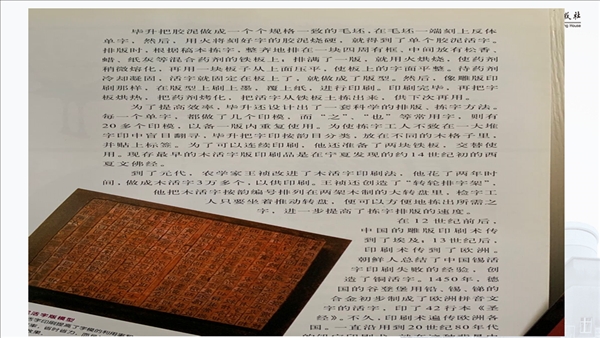 毕升把胶泥做成一个个规格一致的毛坯,在毛坯一端刻上反体
单字,然后,用火将刻好字的胶泥烧硬,就得到了单个胶泥活字。
排版时,根据稿本拣字,整齐地排在一块四周有框、中间放有松香、
蜡、纸灰等混合药剂的铁板上;排满了一版,就用火烘烧,使药剂
稍微熔化,再用一块板子从上面压平,使板上的字面平整。待药剂
冷却凝固,活字就固定在板上了,就做成了版型。然后,像雕版印
刷那样,在版型上刷上墨,覆上纸,进行印刷。印刷完毕,再把字
板烘热,把药剂烤化,把活字从铁板上拣出来,供下次再用。
为了提高效率,毕升还设计出了一套科学的排版、拣字方法。
每一个单字,都做了几个印模,而“之”、“也”等常用字,则有
20多个印模,以备一版内重复使用。为使拣字工人不致在一大堆
字印中盲目翻寻,毕升把字印按韵目分类,放在不同的木格子里,
并贴上标签。为了可以连续印刷,他还准备了两块铁板,交替使
用。现存最早的木活字版印刷品是在宁夏发现的约14世纪初的西
夏文佛经。
到了元代,农学家王祯改进了木活字印刷法,他花了两年时
间,做成木活字3万多个,以供印刷。王祯还创造了“转轮排字架”,
他把木活字按韵编号排列在两架木制的大转盘里,检字工
人只要坐着推动转盘,便可以方便地拣出所需之
字,进一步提高了拣字排版的速度。
在12世纪前后,
中国的雕版印刷术传
到了埃及;13世纪后,
印刷术传到了欧洲。
朝鲜人总结了中国锡活
字印刷失败的经验,创
造了铜活字。1450年,德
国的谷登堡用铅、锡、锑的
合金初步制成了欧洲拼音文
字的活字,印了42行本《圣
经》。不久,印刷术遍传欧洲各
国。一直沿用到20世纪80年代
活字版模型